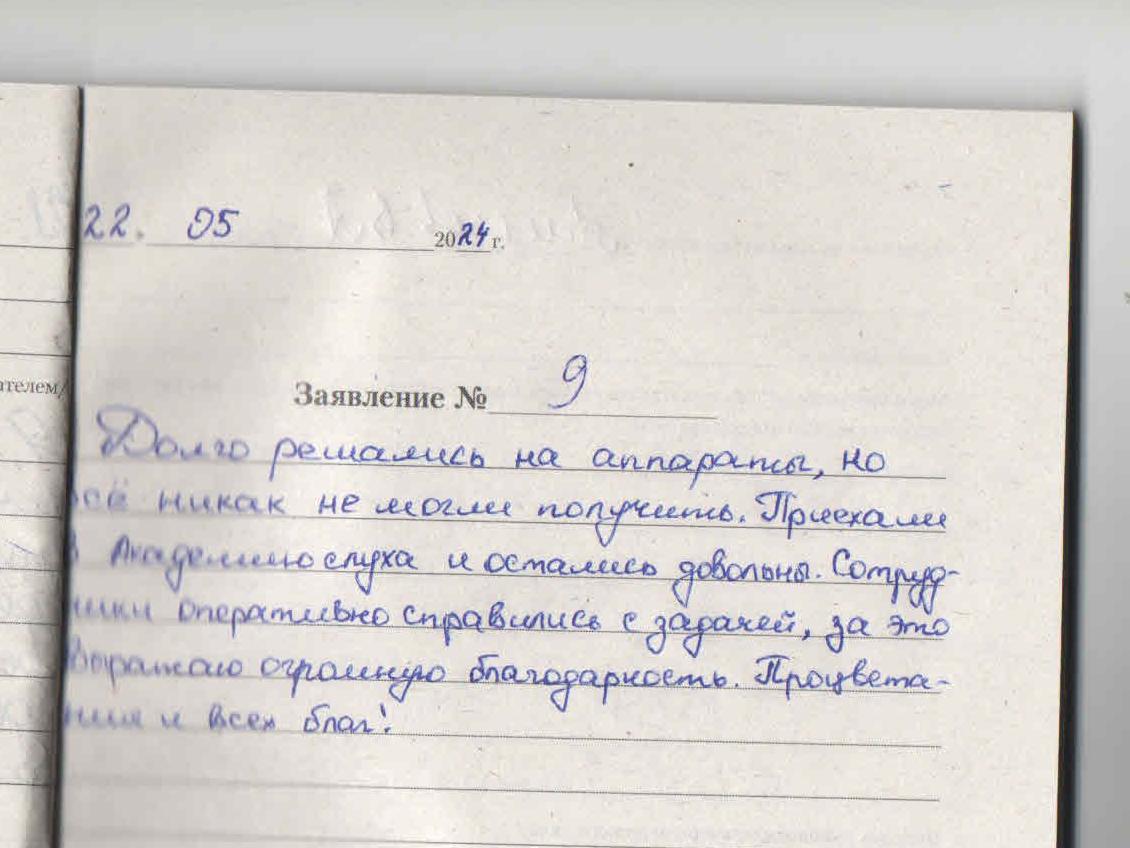 22. 05 2024 г.
ателем/
Заявление № 9
Долго решались на аппараты, но
всё никак не могли получить. Приехали
в Академию слуха и остались довольны. Сотруд-
ники оперативно справились с задачей, за это
выражаю огромную благодарность. Процвета-
ния и всех благ!